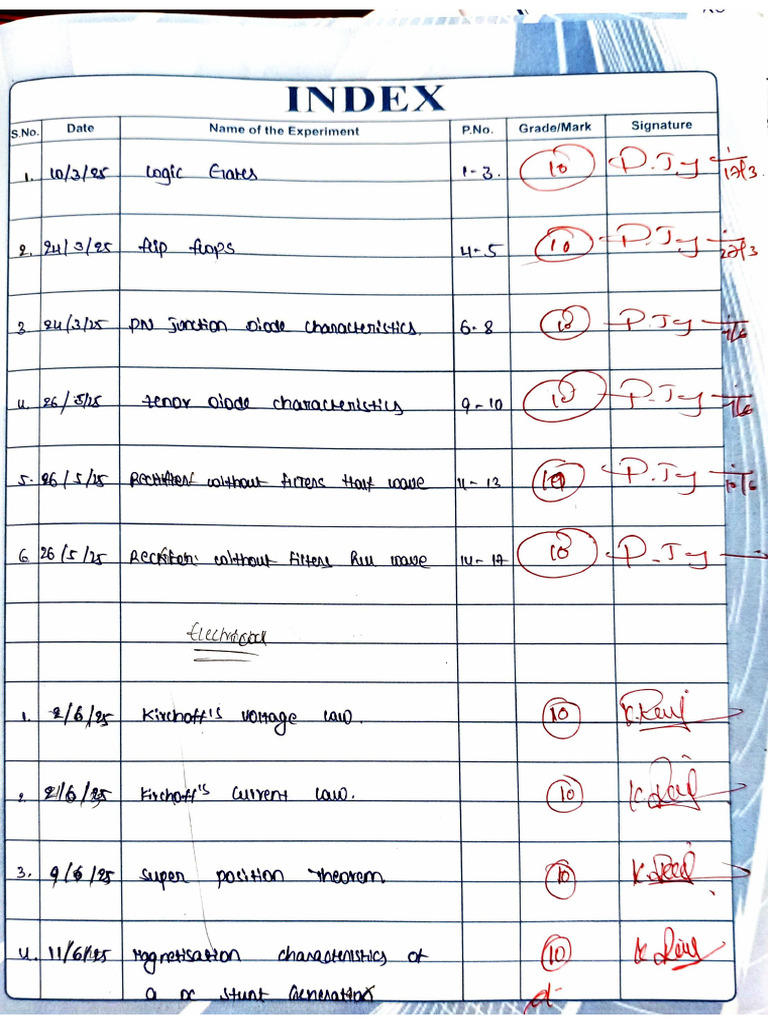 INDEX
S.No. Date Name of the Experiment P.No. Grade/Mark Signature
1. 10/3/25 Logic Gates 1-3. 10 P. Jy 17/3.
2. 24/3/25 flip flops 4-5 10 P. Jy 27/3
3. 24/3/25 PN Junction Diode characteristics. 6-8 10 P. Jy
4. 26/5/25 zenor Diode characteristics 9-10 10 P. Jy
5. 26/5/25 Rectifiers without filters Half wave 11-13 10 P. Jy 10/6
6. 26/5/25 Rectifiers: without filters Full wave 14-17 10 P. Jy
Electrical
1. 2/6/25 Kirchoff's voltage law. 10
2. 2/6/25 Kirchoff's current law. 10
3. 9/6/25 super position Theorem 10
4. 11/6/25 Magnetisation characteristics of 10
a DC shunt Generator